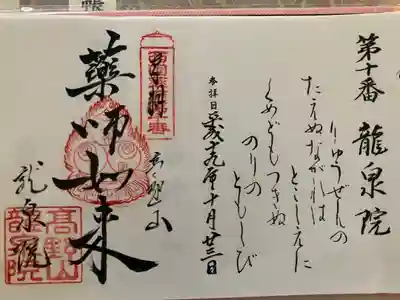 第十番 龍泉院
りゅうぜんの
たえぬながれは
とこしえに
くめどもつきぬ
のりの
ともしび
参拝日 平成十九年十月廿三日
奉拝
高野山
薬師如来
龍泉院
高野山
龍泉院